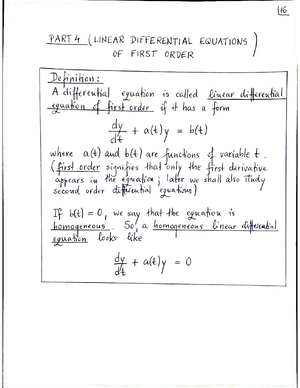 16
PART 4 (LINEAR DIFFERENTIAL EQUATIONS
OF FIRST ORDER)
Definition:
A differential equation is called linear differential
equation of first order if it has a form
dy/dt + a(t)y = b(t)
where a(t) and b(t) are functions of variable t.
(first order signifies that only the first derivative
appears in the equation; later we shall also study
second order differential equations).
If b(t) = 0, we say that the equation is
homogeneous. So, a homogeneous linear differential
equation looks like
dy/dt + a(t)y = 0